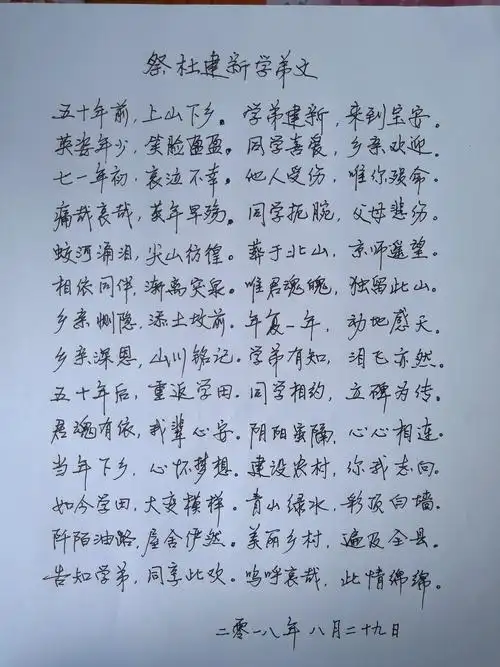 祭杜建新学弟文
五十年前，上山下乡。学弟建新，来到宝安。
英姿年少，笑脸盈盈。同学喜爱，乡亲欢迎。
七一年初，哀泣不幸。他人受伤，唯你殒命。
痛哉哀哉，英年早殇。同学扼腕，父母悲伤。
蛟河涌泪，尖山彷徨。葬于北山，京师遥望。
相依同伴，渐离突泉。唯君魂魄，独留此山。
乡亲恻隐，添土坟前。年复一年，动地感天。
乡亲深恩，山川铭记。学弟有知，泪飞亦然。
五十年后，重返学田。同学相约，立碑为传。
君魂有依，我辈心安。阴阳虽隔，心心相连。
当年下乡，心怀梦想。建设农村，你我志向。
如今学田，大变模样。青山绿水，彩顶白墙。
阡陌油路，屋舍俨然。美丽乡村，遍及全县。
告知学弟，同享此欢。呜呼哀哉，此情绵绵。
二零一八年八月二十九日